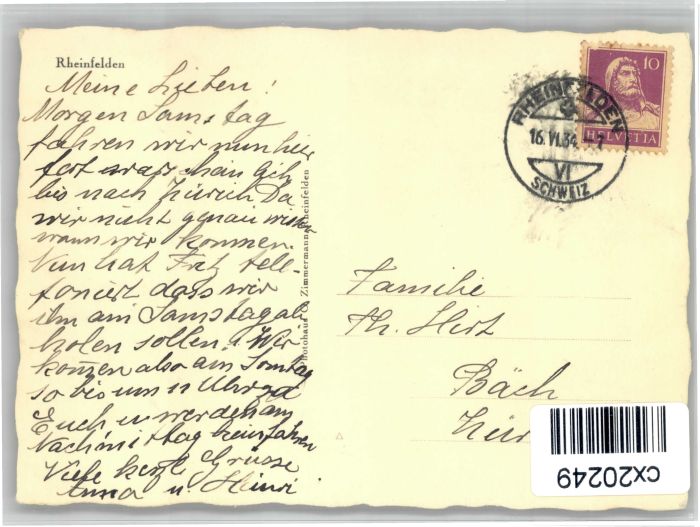 Rheinfelden
Meine Lieben!
Morgen Samstag
fahren wir nun hier
fort
bis nach Zürich Da
wir nicht genau wissen
wann wir kommen.
Nun hat Fritz tele-
foniert dass wir
ihn am Samstag ab-
holen sollen. Wir
kommen also am Sonntag
so bis um 11 Uhr zu
Euch u. werden am
Nachmittag heimfahren
Viele herzl Grüsse
Anna u. Heiri
Photohaus C. Zimmermann, Rheinfelden
10
HELVETIA
RHEINFELDEN
16.VI.34.-7
VI
SCHWEIZ
Familie
Th. Hirt
Bäch
Zür
cx20249